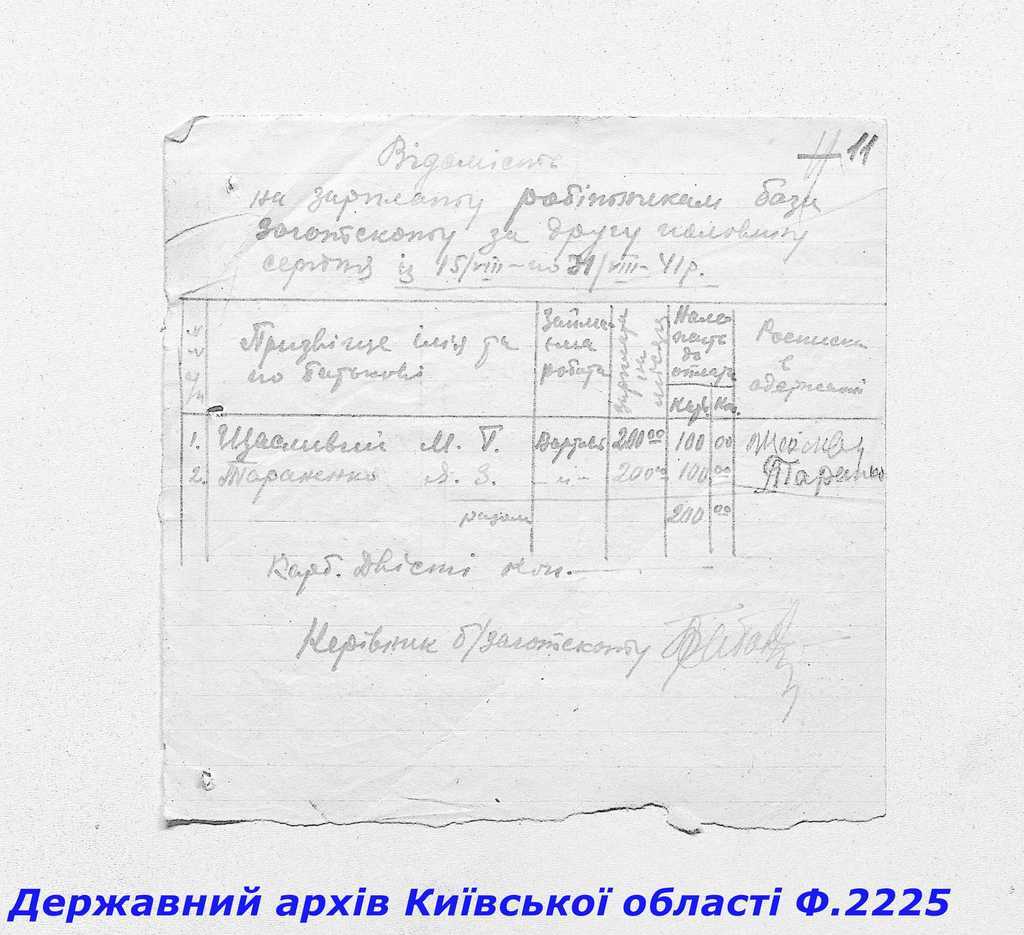 11
Відомість
на зарплату робітникам бази
Заготскоту за другу половину
серпня із 15/VIII – по 31/VIII – 41 р.
Призвіще імія та по батькові
Займаєма робота
зарплата на місяць
Належить до оплати
Карб. Коп.
Росписка в одержанні
1. Щасливий М. Т. Вартов. 200 00 100 00
2. Тараненко Я. З. –"– 200 00 100 00 Таранко
разом 200 00
Карб. Двісті коп. —
Керівник б/Заготскоту
Державний архів Київської області Ф.2225